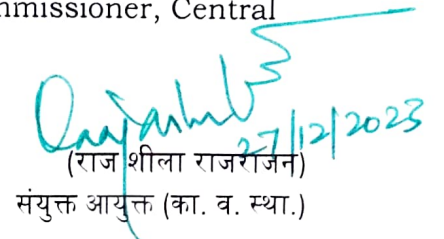 mmissioner, Central
27/12/2023
(राज शीला राजराजन)
संयुक्त आयुक्त (का. व. स्था.)